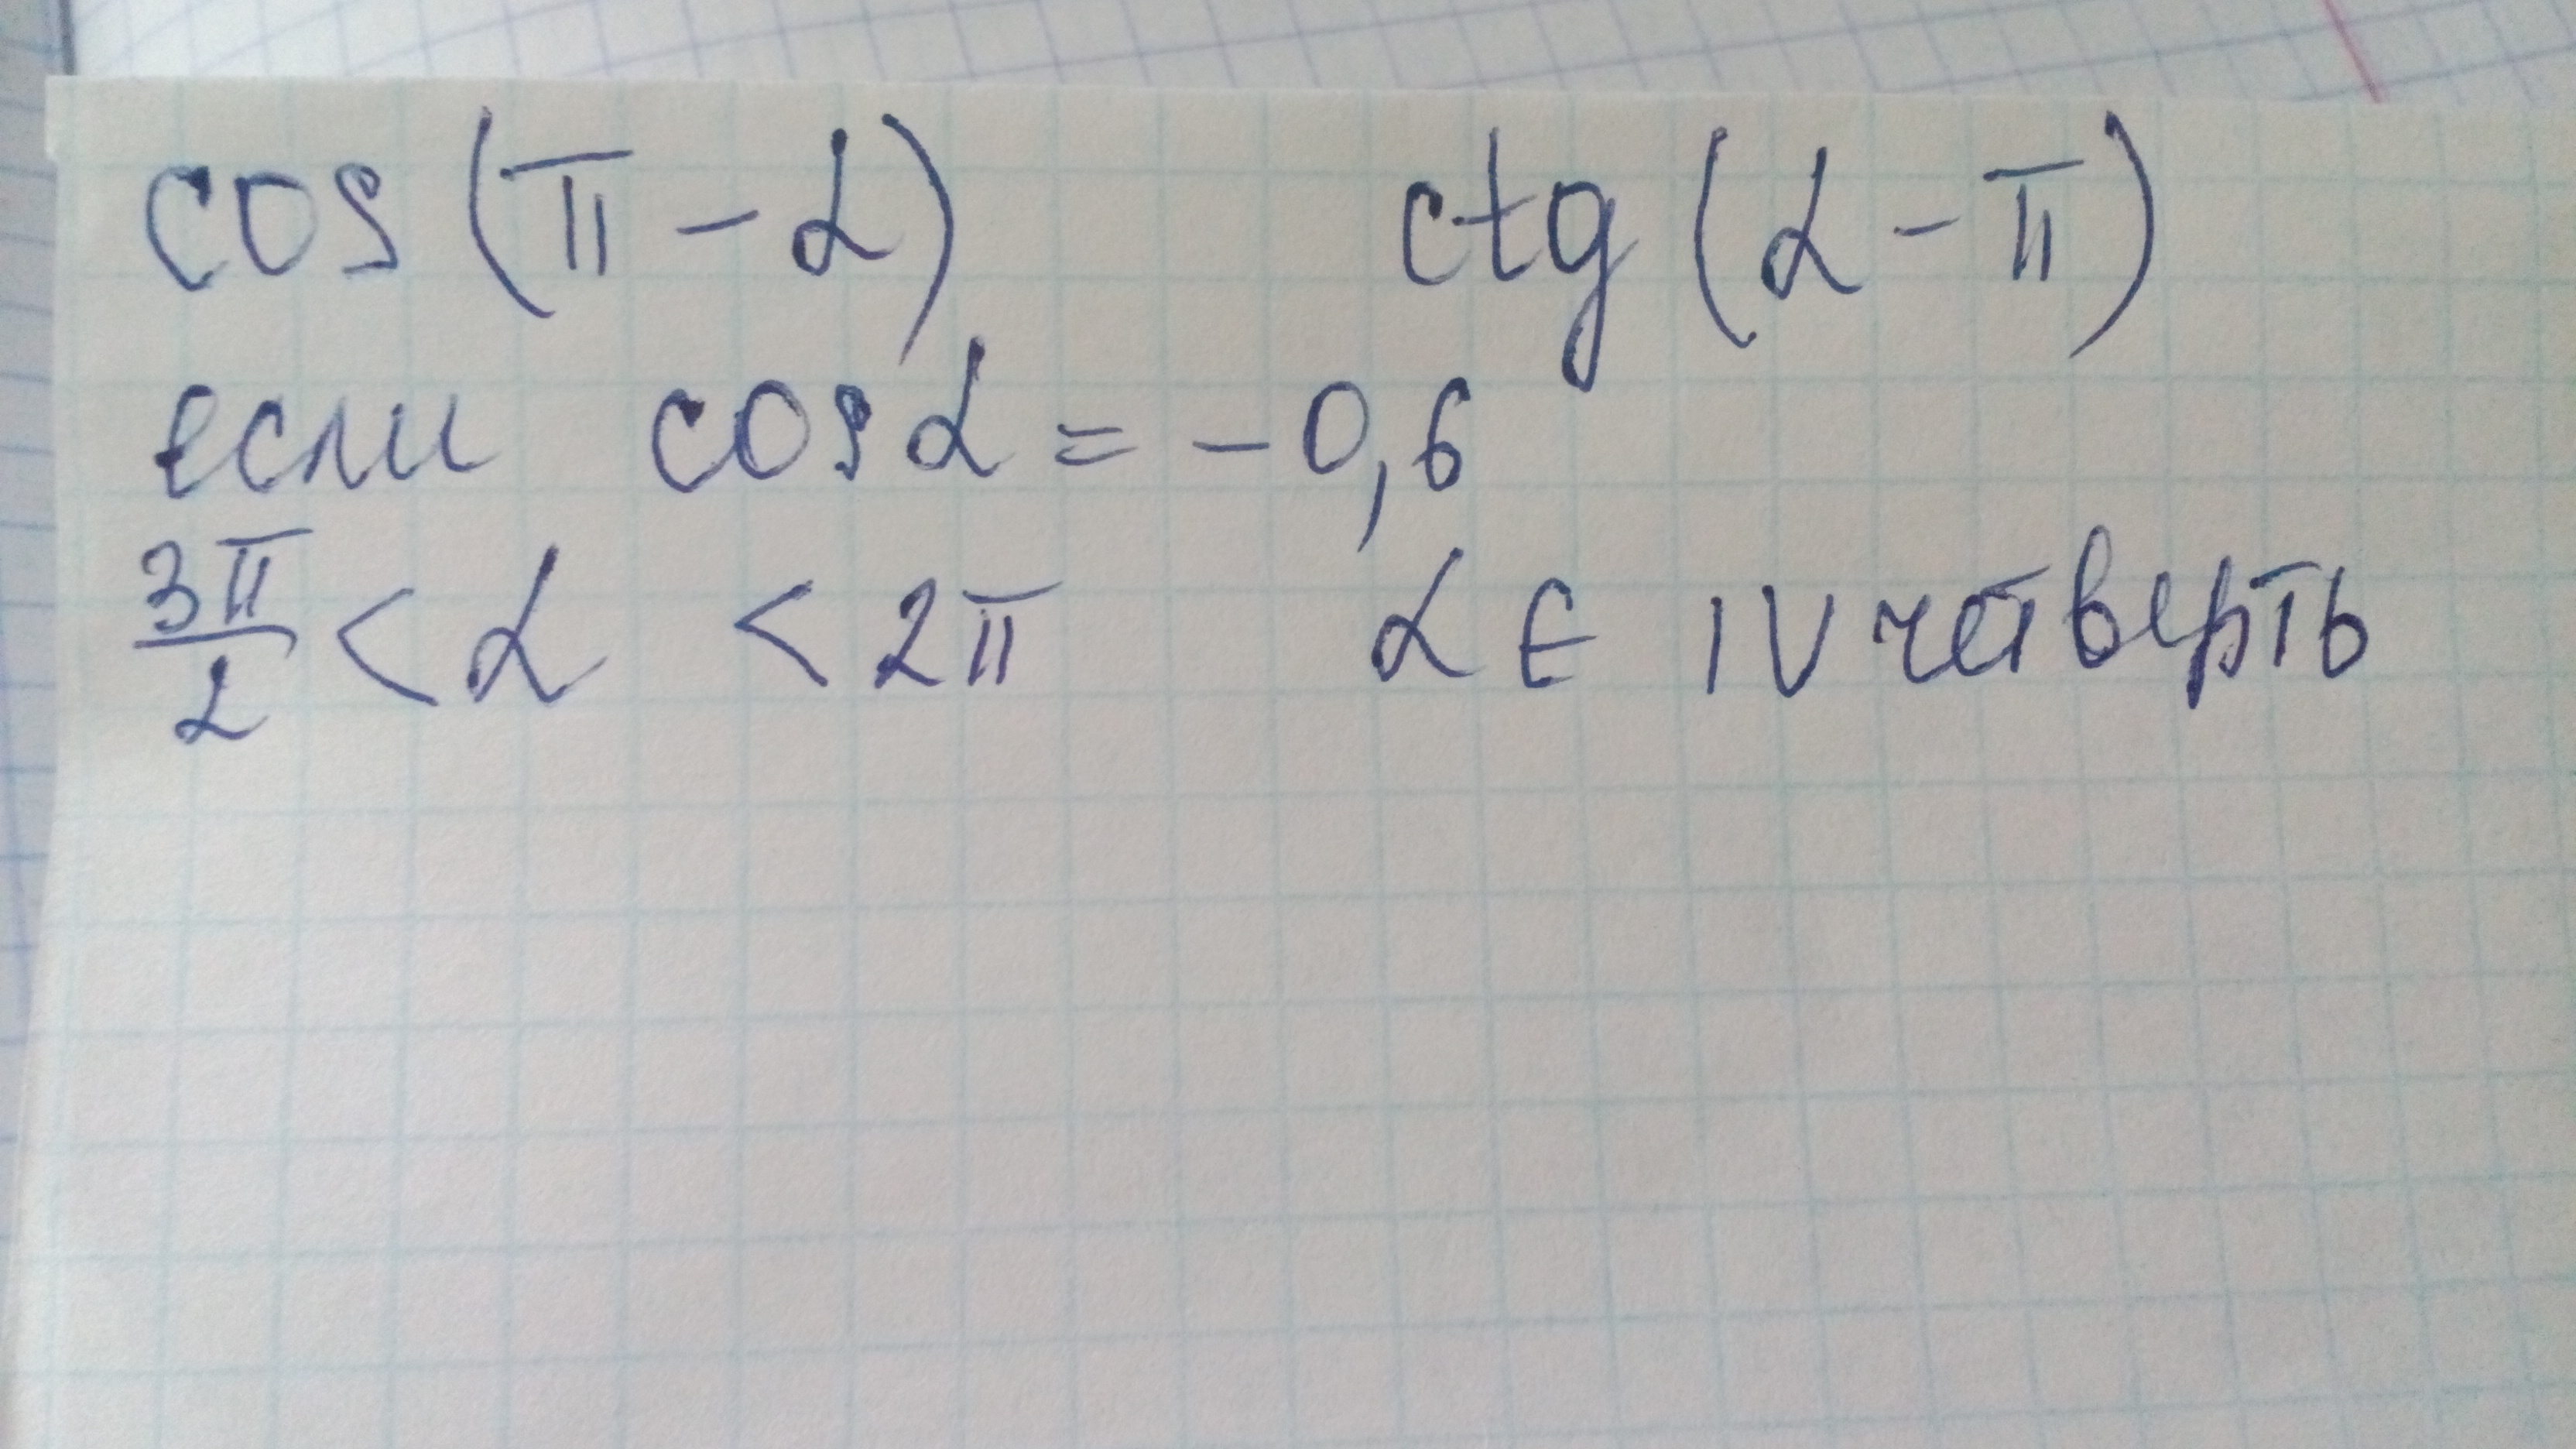 cos (π - α) ctg (α - π)
если cos α = - 0,6
3π/2 < α < 2π α ∈ IV четверть